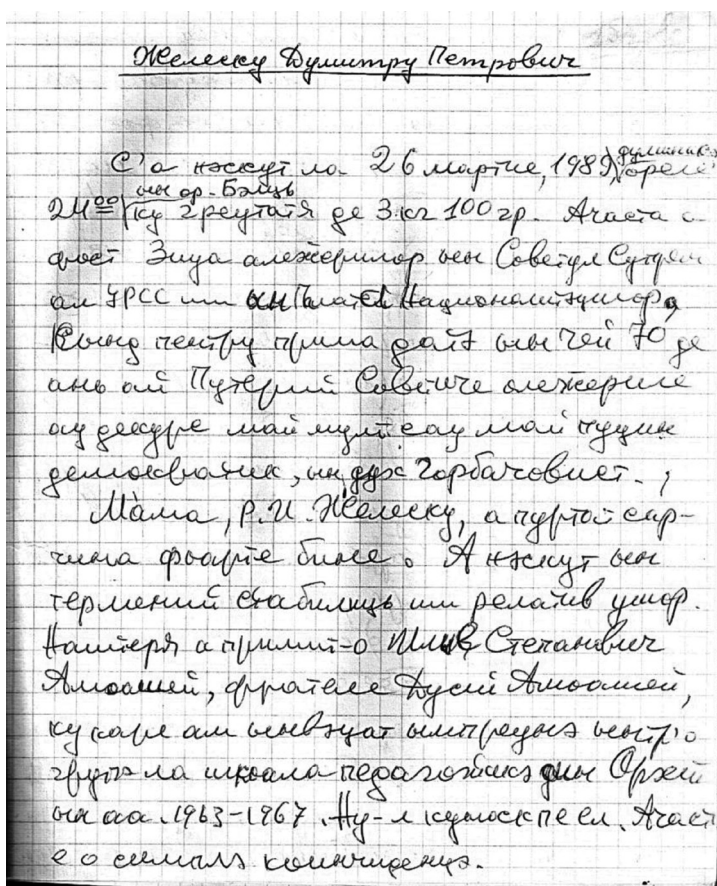 Желеску Думитру Петрович
С'а нэскут ла 26 мартие, 1989, думиникэ
ореле
ын ор. Бэлць
24⁰⁰ ку греутатя де 3 кг 100 гр. Ачаста а
фост Зиуа алежерилор ын Советул Супрем
ал УРСС ши ын Палата Националитэцилор,
Кынд пентру прима датэ ын чей 70 де
ань ай Путерий Советиче алежериле
ау декурс май мулт сау май пуцин
демократик, ын дух Горбачовист.
Мама, Р.И. Желеску, а пуртат сар-
чина фоарте бине. А нэскут ын
термений стабилиць ши релатив ушор.
Наштеря а примит-о Степанович
Амоаший, фрателе Дусий Амоаший,
ку каре ам ынвэцат ымпреунэ ынтр'о
групэ ла шкоала педагожикэ дин Орхей
ын аа. 1963-1967. Ну-л куноск пе ел. Ачаст
е о симплэ коинчиденцэ.